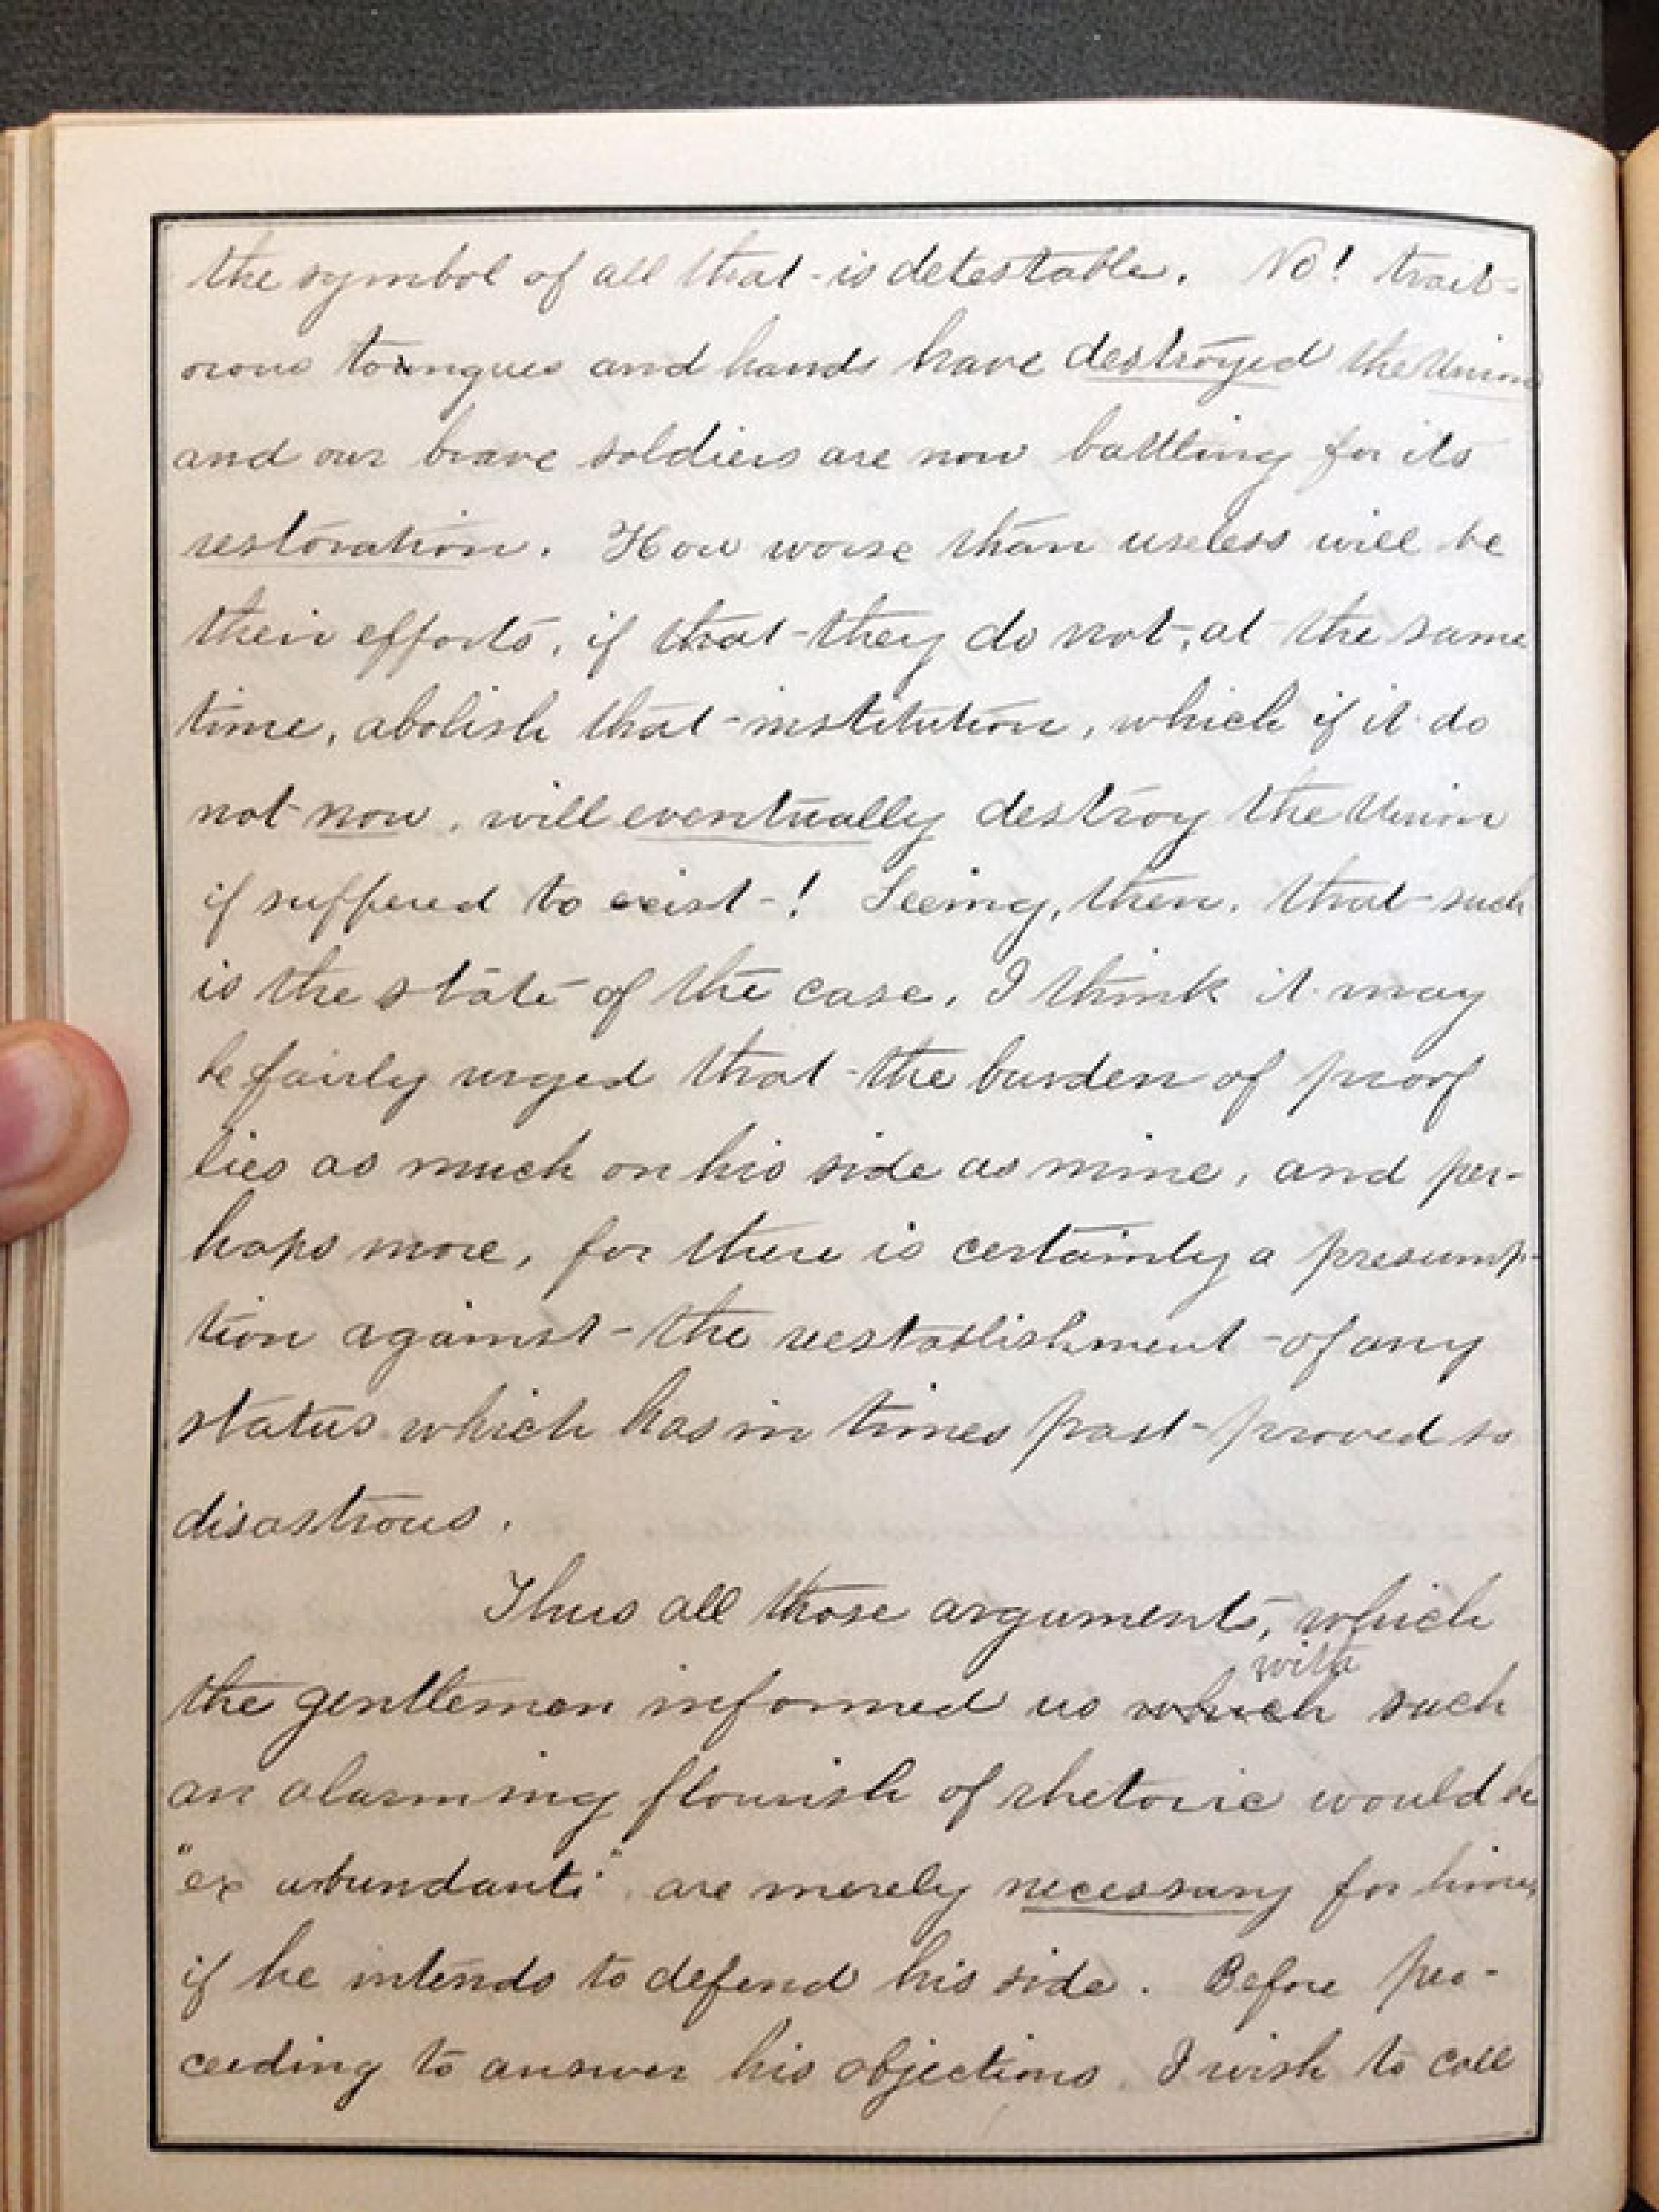 the symbol of all that is detestable. No! trait-
orous toungues and hands have destroyed the Union
and our brave soldiers are now battling for its
restoration. How worse than useless will be
their efforts, if that they do not, at the same
time, abolish that institution, which if it do
not now, will eventually destroy the Union
if suffered to exist! Seeing, then, that such
is the state of the case, I think it may
be fairly urged that the burden of proof
lies as much on his side as mine, and per-
haps more, for there is certainly a presump-
tion against the reestablishment of any
status which has in times past proved so
disastrous.
Thus all those arguments, which
with
the gentleman informed us which such
an alarming flourish of rhetoric would be
"ex abundanti" are merely necessary for him,
if he intends to defend his side. Before pro-
ceeding to answer his objections, I wish to call